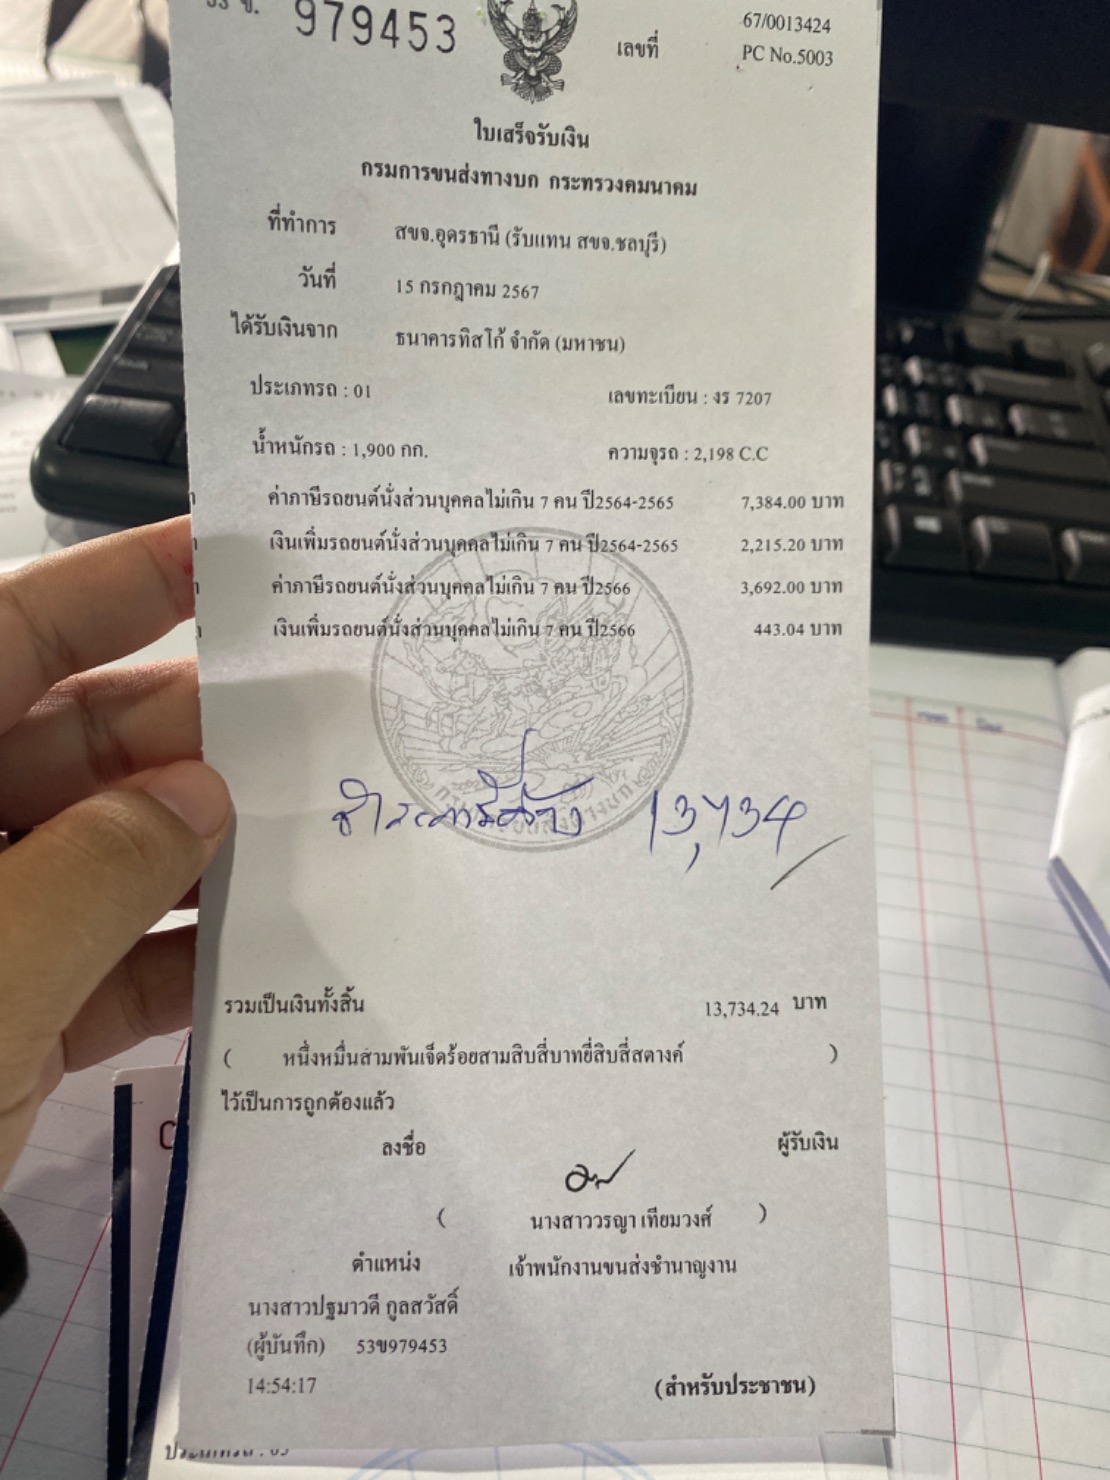 979453
67/0013424
เลขที่
PC No.5003
ใบเสร็จรับเงิน
กรมการขนส่งทางบก กระทรวงคมนาคม
ที่ทำการ สขจ.อุดรธานี (รับแทน สขจ.ชลบุรี)
วันที่ 15 กรกฎาคม 2567
ได้รับเงินจาก ธนาคารทิสโก้ จำกัด (มหาชน)
ประเภทรถ : 01 เลขทะเบียน : งร 7207
น้ำหนักรถ : 1,900 กก. ความจุรถ : 2,198 C.C
ค่าภาษีรถยนต์นั่งส่วนบุคคลไม่เกิน 7 คน ปี2564-2565 7,384.00 บาท
เงินเพิ่มรถยนต์นั่งส่วนบุคคลไม่เกิน 7 คน ปี2564-2565 2,215.20 บาท
ค่าภาษีรถยนต์นั่งส่วนบุคคลไม่เกิน 7 คน ปี2566 3,692.00 บาท
เงินเพิ่มรถยนต์นั่งส่วนบุคคลไม่เกิน 7 คน ปี2566 443.04 บาท
13,734
รวมเป็นเงินทั้งสิ้น 13,734.24 บาท
( หนึ่งหมื่นสามพันเจ็ดร้อยสามสิบสี่บาทยี่สิบสี่สตางค์ )
ไว้เป็นการถูกต้องแล้ว
ลงชื่อ ผู้รับเงิน
( นางสาววรญา เทียมวงศ์ )
ตำแหน่ง เจ้าพนักงานขนส่งชำนาญงาน
นางสาวปฐมาวดี กูลสวัสดิ์
(ผู้บันทึก) 53ข979453
14:54:17 (สำหรับประชาชน)